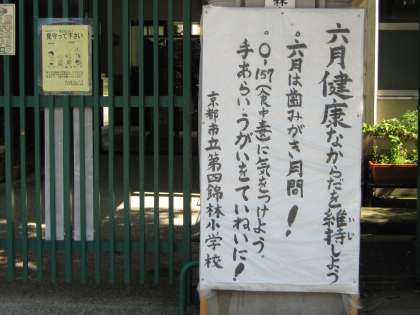 六月健康ながらだを維持しよう
いじ
・六月は歯みがき月間!
・O-157(食中毒)に気をつけよう。
手あらい・うがいをていねいに!
京都市立第四錦林小学校
見守って下さい
林